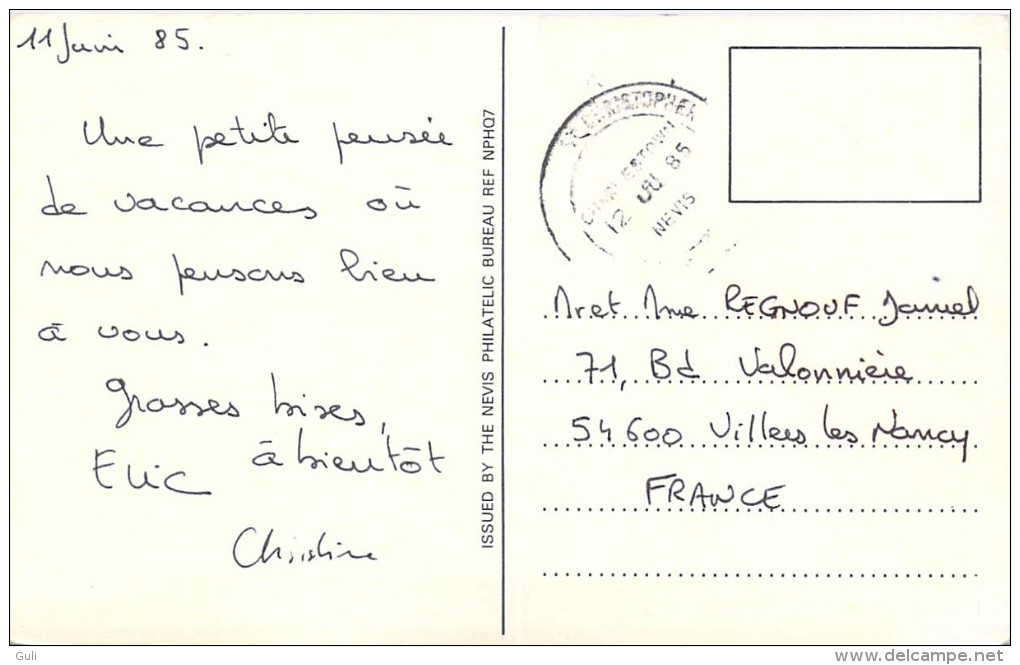 11 Juin 85.
Une petite pensée
de vacances où
nous pensons bien
à vous.
Grosses bises,
à bientôt
Eric
Christine
ISSUED BY THE NEVIS PHILATELIC BUREAU REF NPHQ7
ST. CHRISTOPHER
CHARLESTOWN
12 JU 85
NEVIS
Mr et Mme REGNOUF Daniel
71, Bd Valonnière
54600 Villers les Nancy
FRANCE
Guli
delcampe.net